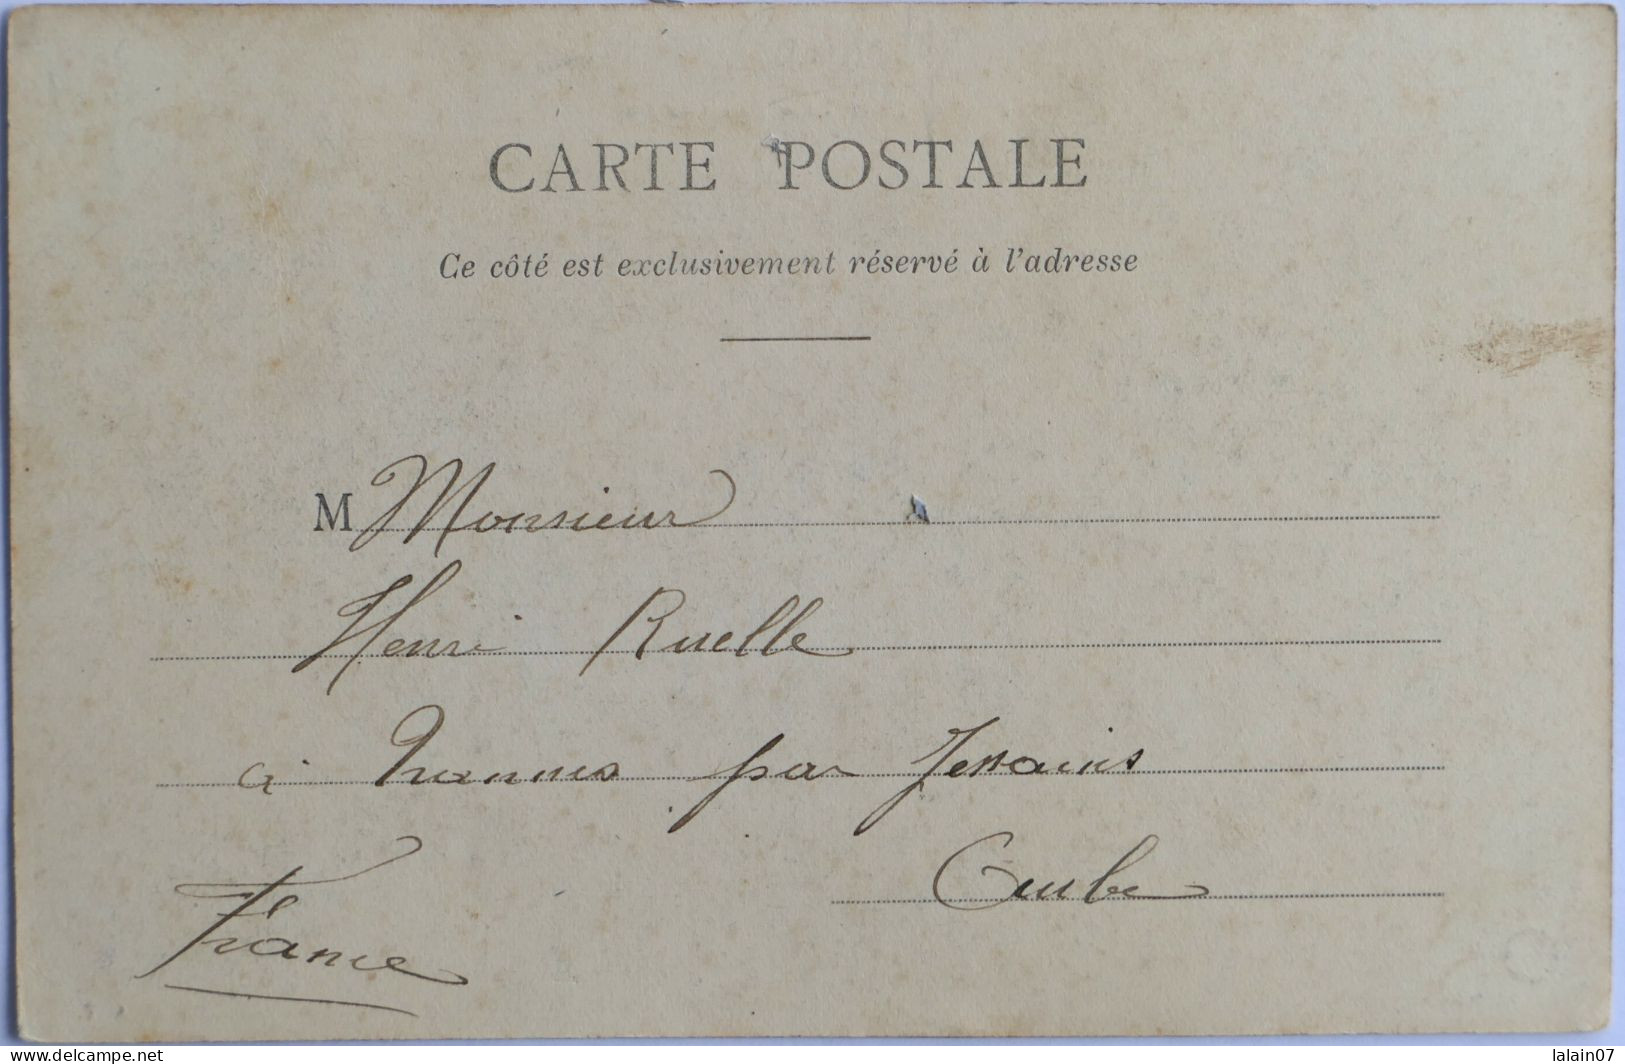 CARTE POSTALE
Ce côté est exclusivement réservé à l'adresse
M Monsieur
Henri Ruelle
à Trannes par Jessains
Aube
France
www.delcampe.net
lalain07